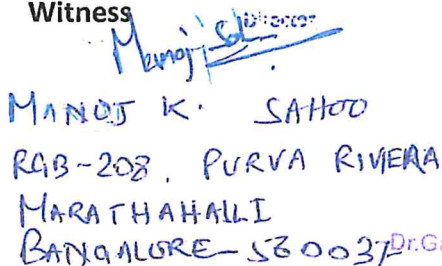 Witness
Director
Manoj Sah
MANOJ K. SAHOO
RGB-208, PURVA RIVIERA
MARATHAHALLI
BANGALORE-560037
Dr.Ga